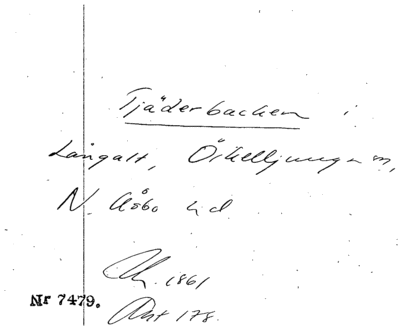 Tjäderbacken i
Långalt, Örkelljunga sn,
N. Åsbo hd
1861
Nr 7479.
178.